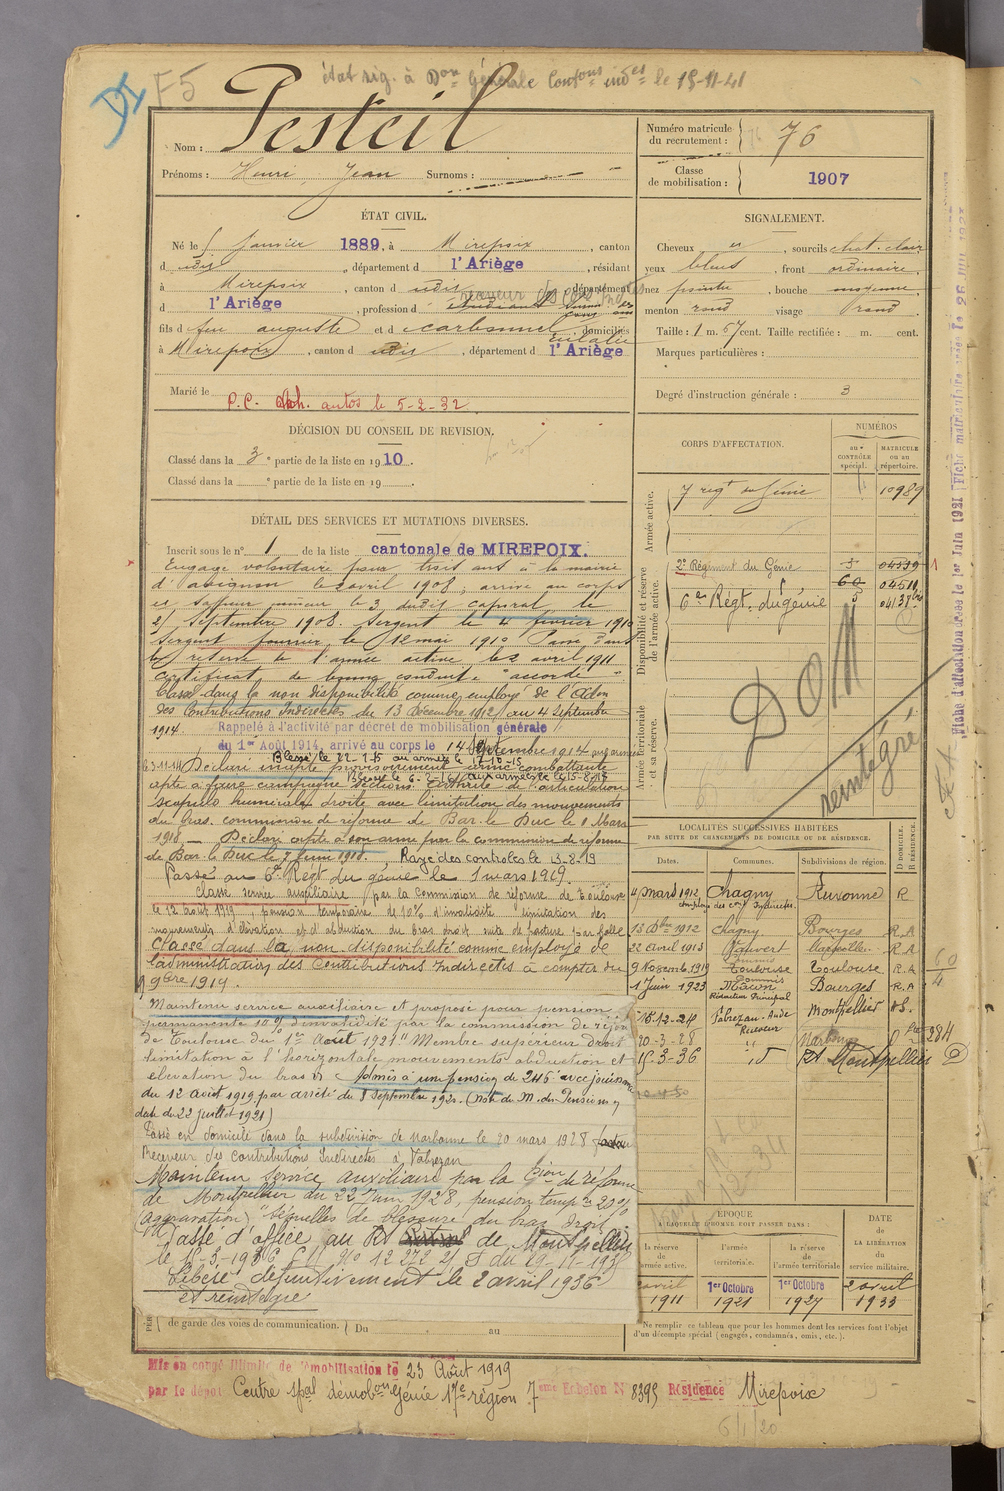 DI F5 état sig. à Don Générale Contons indes le 15-11-41
Nom : Pesteil
Prénoms : Henri, Jean Surnoms :
Numéro matricule du recrutement : 76
Classe de mobilisation : 1907
ÉTAT CIVIL.
Né le 5 Janvier 1889, à Mirepoix, canton
d udis, département d l'Ariège, résidant
à Mirepoix, canton d udis, département
d l'Ariège, profession d
fils d feu auguste et d , domiciliés
à Mirepoix, canton d udis, département d l'Ariège
Marié le
P.C. autos le 5-2-32
SIGNALEMENT.
Cheveux , sourcils chat. clair
yeux bleus, front ordinaire,
nez pointu, bouche moyenne,
menton rond visage rond
Taille : 1 m. 57 cent. Taille rectifiée : m. cent.
Marques particulières :
Degré d'instruction générale : 3
DÉCISION DU CONSEIL DE REVISION.
Classé dans la 3e partie de la liste en 1910.
Classé dans la e partie de la liste en 19 .
DÉTAIL DES SERVICES ET MUTATIONS DIVERSES.
Inscrit sous le n° 1 de la liste cantonale de MIREPOIX.
Engagé volontaire pour trois ans à la mairie
d'avignon le 2 avril 1908, arrivé au corps
et sapeur mineur le 3 dudis caporal le
21 Septembre 1908. Sergent le 4 février 1910
Sergent fourrier le 12 mai 1910 Passé dans
la réserve de l'armée active le 2 avril 1911
Certificat de bonne conduite "accordé"
Classé dans la non disponibilité comme employé de l'Adon
des Contributions Indirectes du 13 Décembre 1912 au 4 Septembre
1914. Rappelé à l'activité par décret de mobilisation générale
du 1er Août 1914, arrivé au corps le 14 Septembre 1914 aux armées
Blessé le 22-7-15 aux armées le 17-10-15
le 3-11-14 Déclaré inapte provisoirement arme combattante
Blessé le 6-2-16 aux armées le 15-8-17
apte à faire campagne sections Arthrite de l'articulation
scapulo humérale droite avec limitation des mouvements
du bras. commission de réforme de Bar-le-Duc le 1 Mars
1918. — Déclaré apte à son arme par la commission de réforme
de Bar le Duc le 7 Juin 1918. Rayé des controles le 13-8-19
Passé au 6e Régt du génie le 1 mars 1919.
Classé service auxiliaire par la Commission de réforme de Toulouse
le 12 Août 1919, pension temporaire de 10% d'invalidité limitation des
mouvements d'élévation et d'abduction du bras droit suite de fracture par balle
Classé dans la non-disponibilité comme employé de
l'administration des Contributions Indirectes à compter du
9 9bre 1919.
Maintenu service auxiliaire et proposé pour pension
permanente 10% d'invalidité par la commission de réforme
de Toulouse du 1er Août 1921 "Membre supérieur droit
limitation à l'horizontale mouvements abduction et
élévation du bras Admis à un pension de 246f avec jouissance
du 12 Août 1919 par arrêté du 8 Septembre 1921. (Note du M. des Pensions
date du 22 juillet 1921)
Passé en domicile dans la subdivision de Narbonne le 20 mars 1928
Receveur des Contributions Indirectes à Fabrezan
Maintenu Service auxiliaire par la Cion de réforme
de Montpellier du 22 Juin 1928, pension tempre 20%
(Aggravation), "Séquelles de blessure du bras droit".
Passé d'office au Rt de Montpellier
le 15-3-1936 C.M. n° 12272 2/5 du 19-11-1935
Libéré définitivement le 2 avril 1936
et reintégré
de garde des voies de communication. Du au
CORPS D'AFFECTATION.
NUMÉROS
au CONTRÔLE spécial.
MATRICULE ou au répertoire.
Armée active.
7 regt du Génie 10989
Disponibilité et réserve de l'armée active.
2e Régiment du Génie 5 04539
60 04510
6e Régt. du génie 5 04138bis
Armée territoriale et sa réserve.
DOM
reintégré
LOCALITÉS SUCCESSIVES HABITÉES
PAR SUITE DE CHANGEMENTS DE DOMICILE OU DE RÉSIDENCE.
Dates. Communes. Subdivisions de région. D DOMICILE. R RÉSIDENCE.
4 mars 1912 Chagny Auxonne R
employé des con Indirectes
13 Xbre 1912 Chagny Bourges R.A
22 Avril 1913 Vauvert Montpellier R.A
9 Novemb. 1919 Commis Toulouse Toulouse R.A
1 Juin 1923 Commis Macon Bourges R.A
Rédacteur Principal
15.12-24 Fabrezan-Aude Montpellier
Receveur
20-3-28 " Narbonne D 284
15-3-36 d° Rt Montpellier D
60/4
ÉPOQUE
À LAQUELLE L'HOMME DOIT PASSER DANS :
la réserve de l'armée active. l'armée territoriale. la réserve de l'armée territoriale
DATE de LA LIBÉRATION du service militaire.
2 avril 1911 1er Octobre 1921 1er Octobre 1927 2 avril 1933
Ne remplir ce tableau que pour les hommes dont les services font l'objet
d'un décompte spécial (engagés, condamnés, omis, etc.).
Mis en congé illimité de démobilisation le 23 Août 1919
par le dépôt Centre spal démobon Génie 17e région 7ème Echelon N° 8395 Résidence Mirepoix
6/1/20
Fiche d'affectation créée le 1er Juin 1921